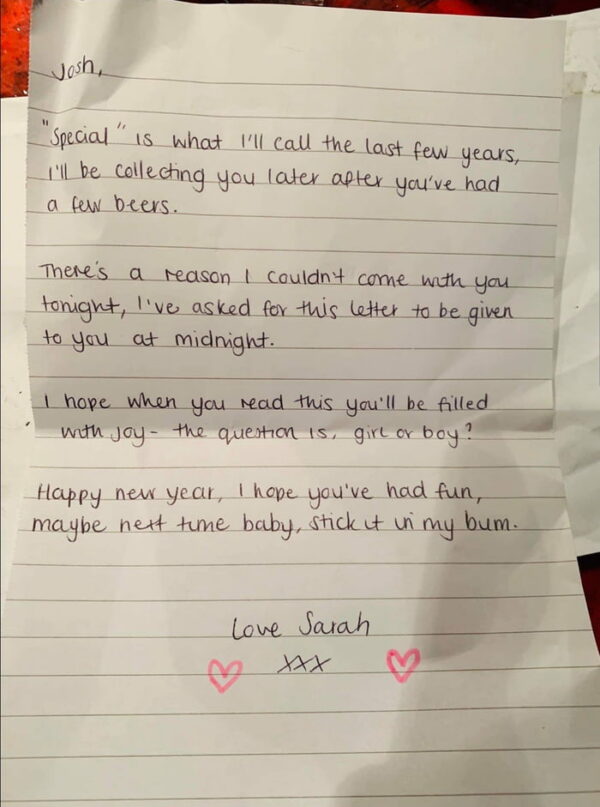 Josh,
"Special" is what I'll call the last few years,
I'll be collecting you later after you've had
a few beers.
There's a reason I couldn't come with you
tonight, I've asked for this letter to be given
to you at midnight.
I hope when you read this you'll be filled
with joy- the question is, girl or boy?
Happy new year, I hope you've had fun,
maybe next time baby, stick it in my bum.
Love Sarah
xxx